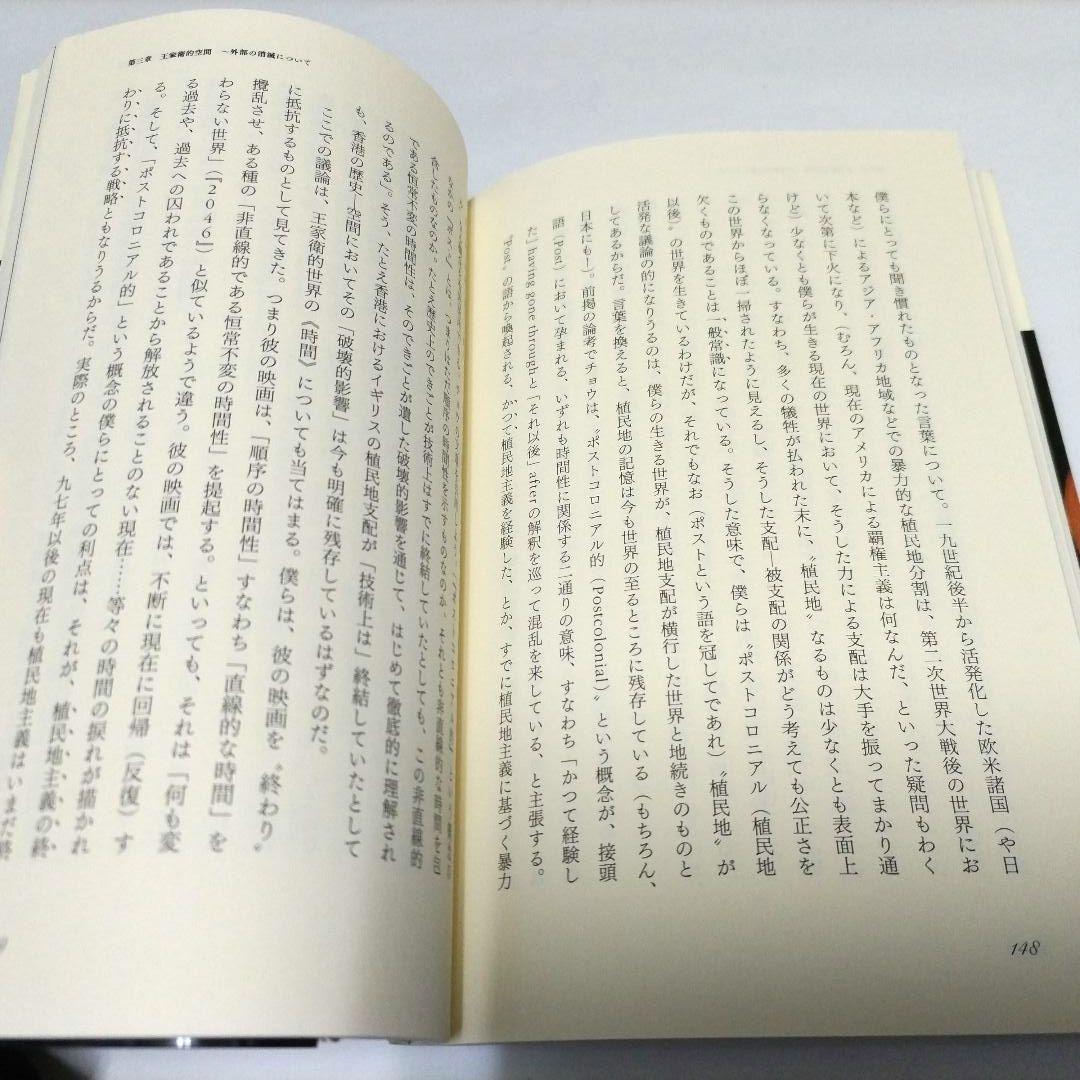 僕らにとっても聞き慣れたものとなった言葉について。一九世紀後半から活発化した欧米諸国（や日
本など）によるアジア・アフリカ地域などでの暴力的な植民地分割は、第二次世界大戦後の世界にお
いて次第に下火になり、（むろん、現在のアメリカによる覇権主義は何なんだ、といった疑問もわく
けど）少なくとも僕らが生きる現在の世界において、そうした力による支配は大手を振ってまかり通
らなくなっている。すなわち、多くの犠牲が払われた末に、〝植民地〟なるものは少なくとも表面上
この世界からほぼ一掃されたように見えるし、そうした支配―被支配の関係がどう考えても公正さを
欠くものであることは一般常識になっている。そうした意味で、僕らは〝ポストコロニアル（植民地
以後）〟の世界を生きているわけだが、それでもなお（ポストという語を冠してであれ）〝植民地〟が
活発な議論の的になりうるのは、僕らの生きる世界が、植民地支配が横行した世界と地続きのものと
してあるからだ。言葉を換えると、植民地の記憶は今も世界の至るところに残存している（もちろん、
日本にも！）。前掲の論考でチョウは、〝ポストコロニアル的（Postcolonial）〟という概念が、接頭
語（Post）において孕まれる、いずれも時間性に関係する二通りの意味、すなわち「かつて経験し
た」having gone throughと「それ以後」afterの解釈を巡って混乱を来している、と主張する。
〝Post〟の語から喚起される、かつて植民地主義を経験した、とか、すでに植民地主義に基づく暴力
148
第三章　王家衛的空間　～外部の消滅について
含したものなのか。たとえ歴史上のできごとが技術上はすでに終結していたとしても、この非直線的
である恒常不変の時間性は、そのできごとが遺した破壊的影響を通じて、はじめて徹底的に理解され
るのである」。そう、たとえ香港におけるイギリスの植民地支配が「技術上は」終結していたとして
も、香港の歴史―空間においてその「破壊的影響」は今も明確に残存しているはずなのだ。
ここでの議論は、王家衛的世界の《時間》についても当てはまる。僕らは、彼の映画を〝終わり〟
に抵抗するものとして見てきた。つまり彼の映画は、「順序の時間性」すなわち「直線的な時間」を
攪乱させ、ある種の「非直線的である恒常不変の時間性」を提起する。といっても、それは「何も変
わらない世界」（『2046』）と似ているようで違う。彼の映画では、不断に現在に回帰（反復）す
る過去や、過去への囚われであることから解放されることのない現在……等々の時間の捩れが描かれ
る。そして、「ポストコロニアル的」という概念の僕らにとっての利点は、それが、植民地主義の終
わりに抵抗する戦略ともなりうるからだ。実際のところ、九七年以後の現在も植民地主義はいまだ終